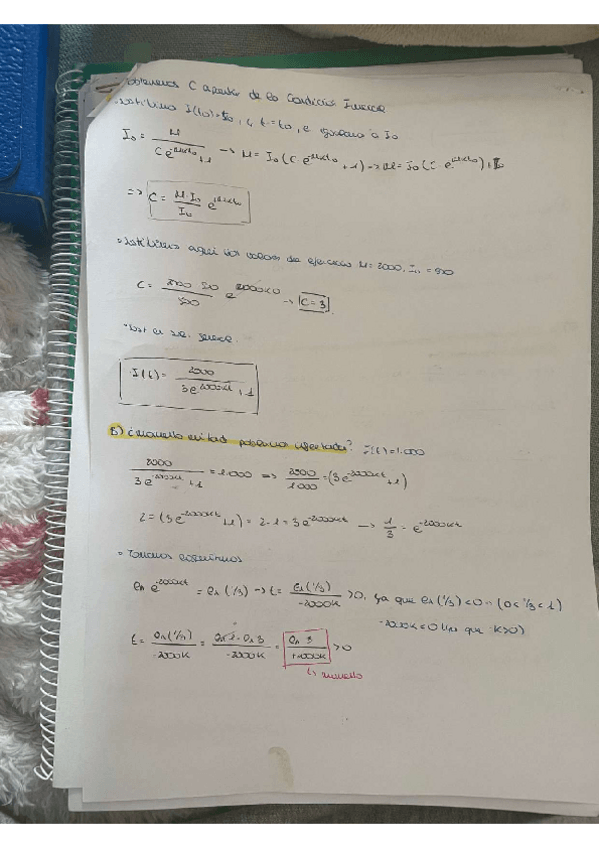 obtenemos C a partir de la Condición Inicial
I(t₀)=I₀, t=t₀, e igualamos a I₀
I₀ = M / (C e^(-Mkt₀) + 1) → M = I₀ (C · e^(-Mkt₀) + 1) → M = I₀ (C · e^(-Mkt₀)) + I₀
=> C = (M - I₀) / I₀ e^(Mkt₀)
aquí los valores de ejercicio M = 2000, I₀ = 500
C = (2000 - 500) / 500 e^(2000k·0) → C = 3
I(t) = 2000 / (3e^(-2000kt) + 1)
B) ¿ mitad población infectada? I(t) = 1.000
2000 / (3e^(-2000kt) + 1) = 1.000 => 2000 / 1000 = (3e^(-2000kt) + 1)
2 = (3e^(-2000kt) + 1) = 2 - 1 = 3e^(-2000kt) → 1/3 = e^(-2000kt)
• Tomamos logaritmos
ln e^(-2000kt) = ln (1/3) → t = ln(1/3) / -2000k > 0, ya que ln(1/3) < 0 (0 < 1/3 < 1)
-2000k < 0 que k > 0)
t = ln(1/3) / -2000k = ln 1 - ln 3 / -2000k = ln 3 / +2000k > 0